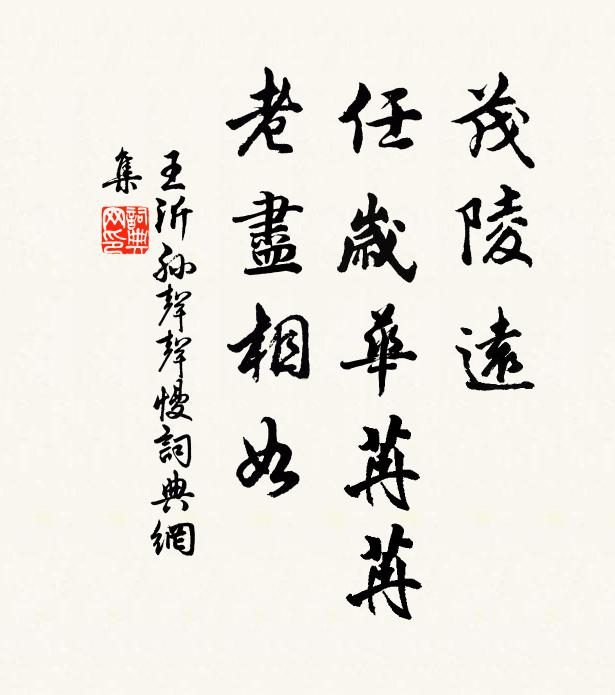 茂陵遠
任歲華苒苒
老盡相如
王沂孙聲聲慢詞典網
集
詞典
网印